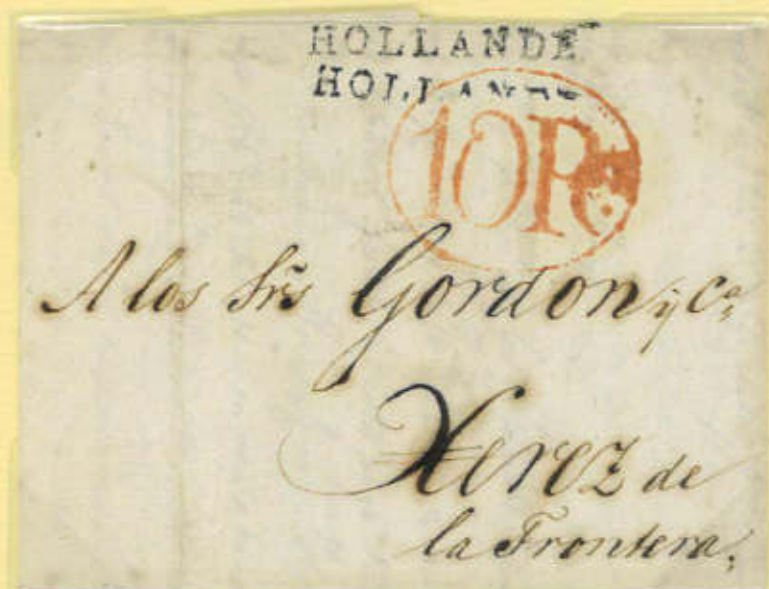 HOLLANDE
HOLLANDE
10 Rs.
A los Srs Gordon y Ca,
Xerez de
la Frontera,